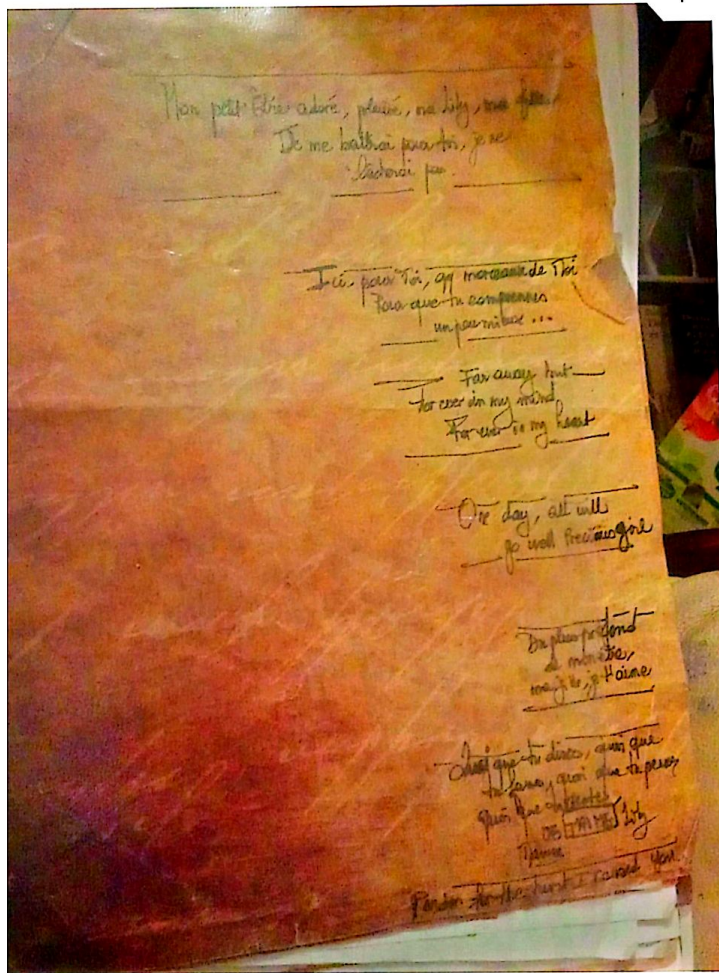 Mon petit Être adoré, pleuré, ma Lily, ma fille
Je me battrai pour toi, je ne
lâcherai pas.
Ici pour Toi, qq morceaux de Toi
Pour que tu comprennes
un peu mieux ...
Far away but
For ever in my mind
For ever in my heart
One day, all will
go well Precious girl
Du plus profond
de mon être,
ma fille, je t'aime
Quoi que tu dises, quoi que
tu fasses, quoi que tu penses
Quoi que
Lily
Maman
Pardon for the hurt I caused you.